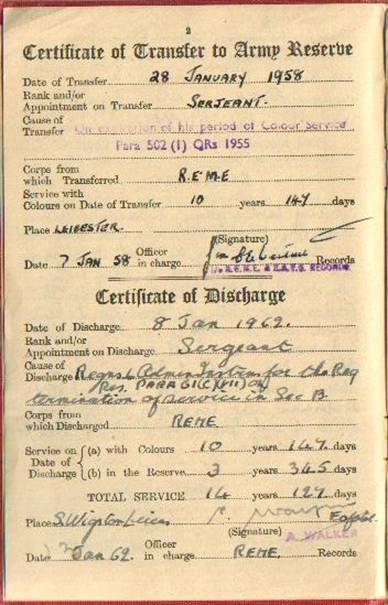 2
Certificate of Transfer to Army Reserve
Date of Transfer 28 JANUARY 1958
Rank and/or
Appointment on Transfer SERJEANT.
Cause of
Transfer On expiration of his period of Colour Service
Para 502 (1) QRs 1955
Corps from
which Transferred R.E.M.E
Service with
Colours on Date of Transfer 10 years 147 days
Place LEICESTER.
(Signature)
Date 7 JAN 58 Officer in charge Records
R.E.M.E. & R.A.P.C. RECORDS
Certificate of Discharge
Date of Discharge 8 Jan 1962.
Rank and/or
Appointment on Discharge Sergeant
Cause of
Discharge for the Reg
Res. PARA on
termination of service in Sec B.
Corps from
which Discharged REME
Service on (a) with Colours 10 years 147 days
Date of
Discharge (b) in the Reserve 3 years 345 days
TOTAL SERVICE 14 years 127 days
Place S. Wigston Leics
(Signature) A. WALKER
Date Jan 62. Officer in charge REME. Records